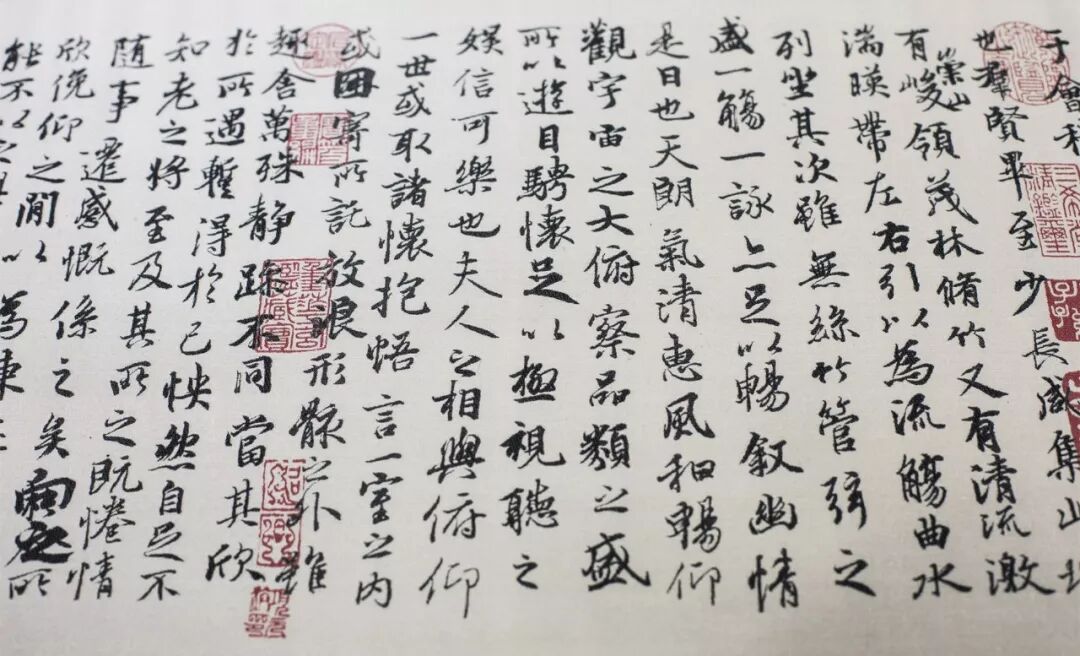 于會
也羣賢畢至少長咸集
有崇山峻領茂林脩竹又有清流激
湍暎帶左右引以為流觴曲水
列坐其次雖無絲竹管弦之
盛一觴一詠亦足以暢敘幽情
是日也天朗氣清惠風和暢仰
觀宇宙之大俯察品類之盛
所以遊目騁懷足以極視聽之
娛信可樂也夫人之相與俯仰
一世或取諸懷抱悟言一室之內
或因寄所託放浪形骸之外雖
趣舍萬殊靜躁不同當其欣
於所遇蹔得於己怏然自足不
知老之將至及其所之既惓情
隨事遷感慨係之矣向之所
欣俛仰之閒以為陳
能不以之